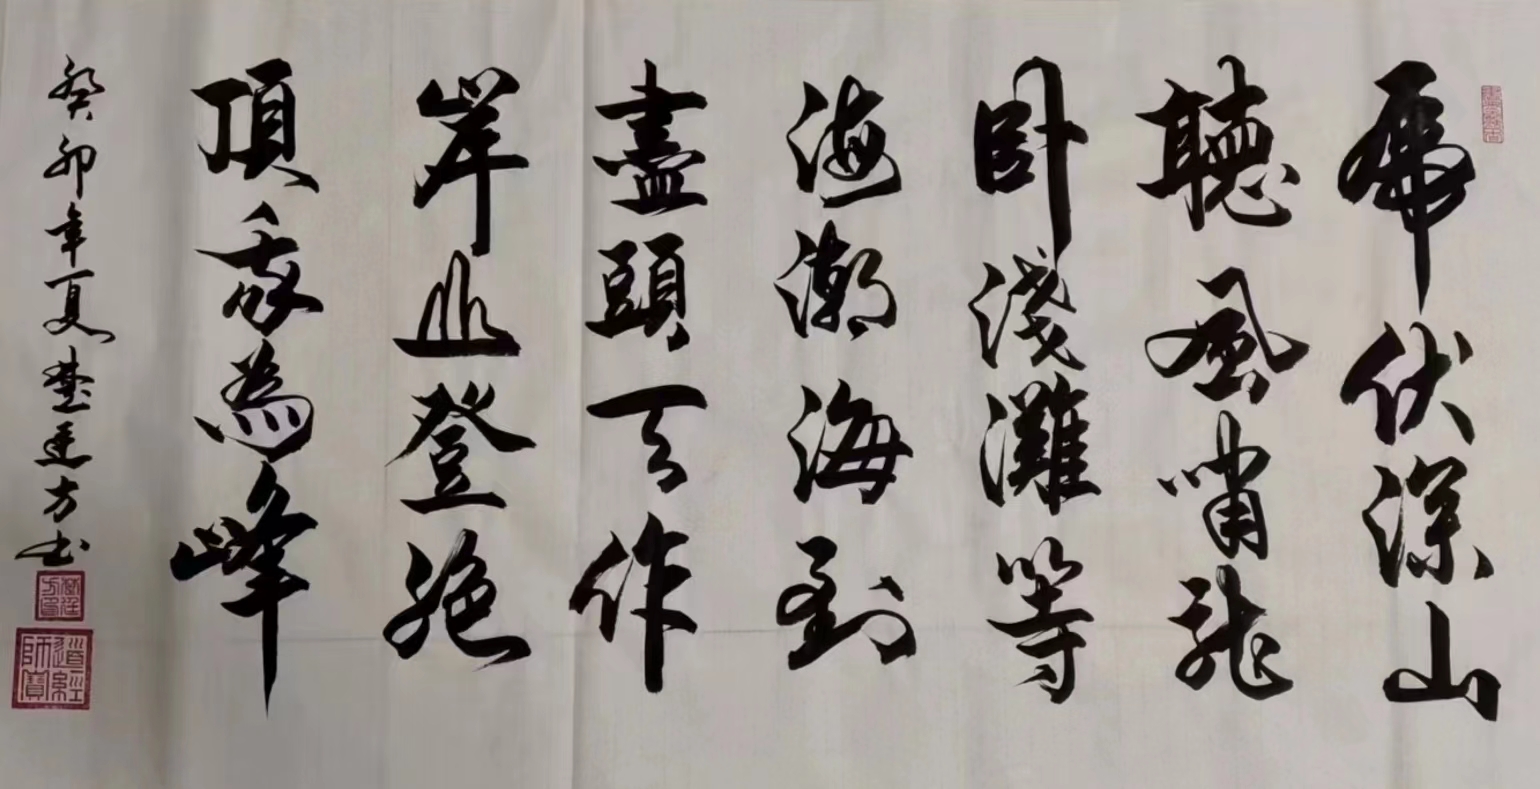 虎伏深山
聽風嘯龍
卧淺灘等
海潮海到
盡頭天作
岸山登絶
頂我為峰
癸卯年夏楚廷方书
道經師寶